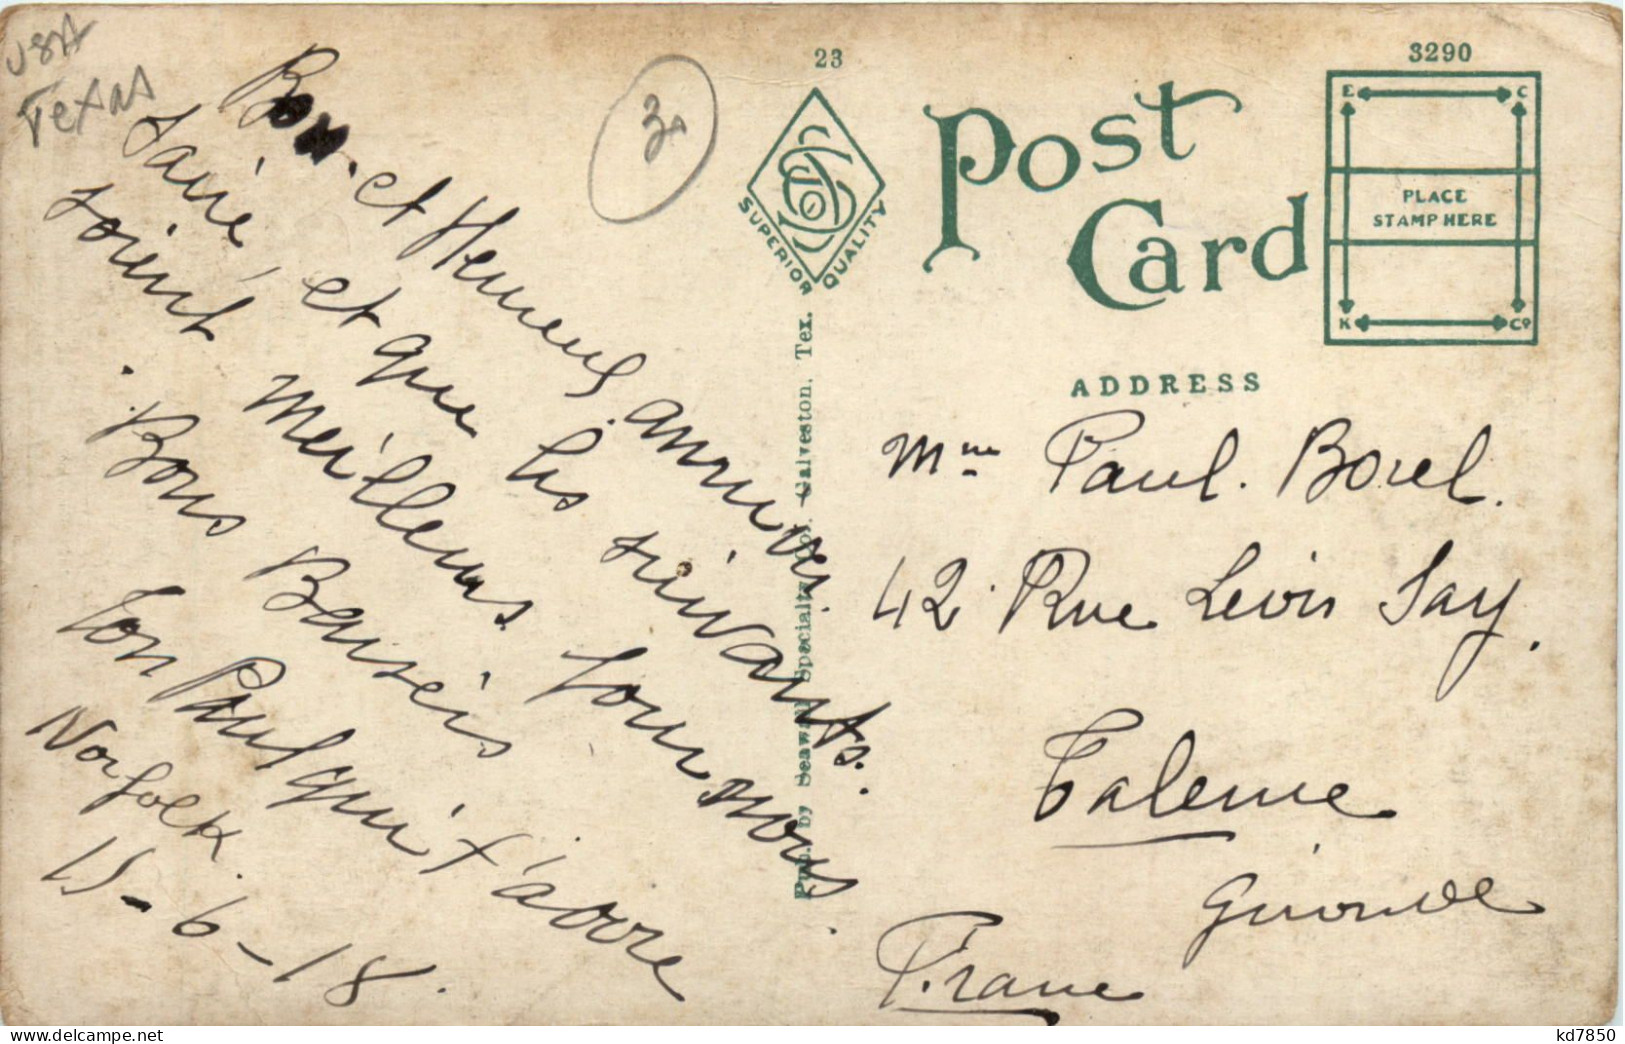 USA
Texas
38
Bon et Heureux anniver.
Sairé et que les suivants.
soient meilleurs pour nous.
Bons Baisers
Ton Paul qui t'adore
Norfolk.
15-6-18.
23
SUPERIOR QUALITY
Pub. by Seawall Specialty Co. Galveston. Tex.
Post Card
3290
E C
PLACE
STAMP HERE
K Co
ADDRESS
Mme Paul Borel.
42 Rue Léon Say.
Talence
Gironde
France
kd7850